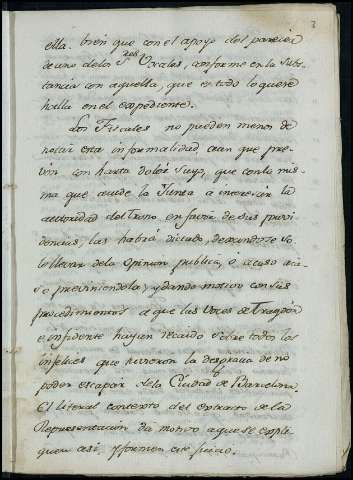 3
ella. bien que con el apoyo del parecer
de uno de los S.res Vocales, conforme en la subs
tancia con aquella, que es todo lo que se
halla en el expediente.
Los Fiscales no pueden menos de
notar esta informalidad aun que pre
vén con harto dolor suyo, que con la mis
ma que acude la Junta a interesar la
autoridad del Trono en favor de sus provi
dencias, las habrá dictado, dexandose so
lo llevar de la Opinion publica, ó acaso aca
so previniendola, y dando motivo con sus
procedimientos a que las voces de Traydór
e infidente hayan recaido sobre todos los
infelices que tuvieron la desgracia de no
poder escapar de la Ciudad de Barcelona.
El literal contexto del extracto de la
Representación da motivo a que se expli
quen asi, y formen este juicio.